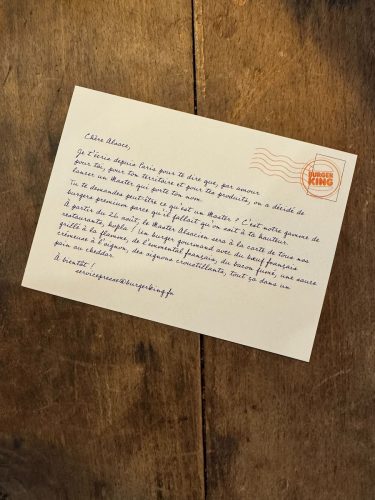 Chère Alsace,
Je t'écris depuis Paris pour te dire que, par amour
pour toi, pour ton territoire et pour tes produits, on a décidé de
lancer un Master qui porte ton nom.
Tu te demandes peut-être ce qu'est un Master ? C'est notre gamme de
burgers premium parce qu'il fallait qu'on soit à ta hauteur.
À partir du 26 août, le Master Alsacien sera à la carte de tous nos
restaurants, hopla ! Un burger gourmand avec du bœuf français
grillé à la flamme, de l'emmental français, du bacon fumé, une sauce
crémeuse à l'oignon, des oignons croustillants, tout ça dans un
pain au cheddar.
À bientôt !
servicepresse@burgerking.fr
BURGER
KING